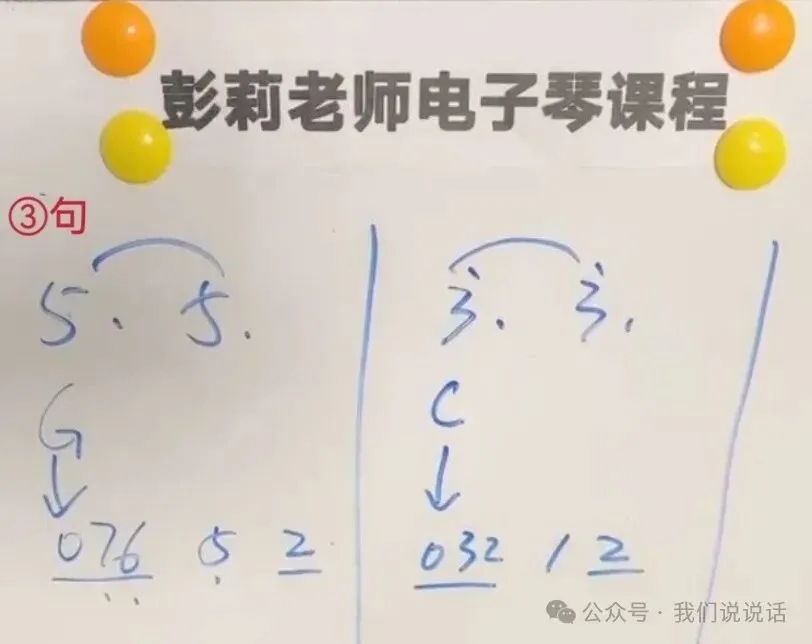 彭莉老师电子琴课程
③句
5. 5. | 3̇. 3̇. |
G C
↓ ↓
076 5 2 | 032 1 2
公众号·我们说说话